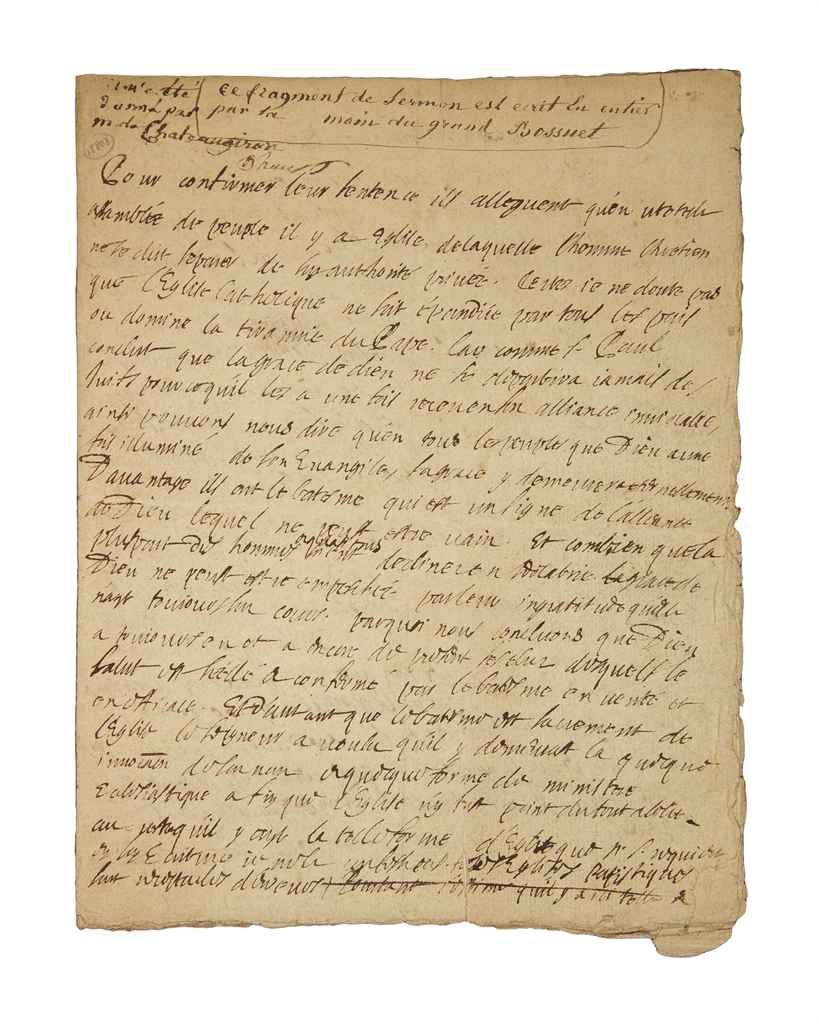 m'a été
donné par
m. de Chateaugiron
ce fragment de Sermon est ecrit En entier
par la main du grand Bossuet
Pour confirmer leur sentence ils alleguent qu'en
assamblée de peuple il y a Eglise, de laquelle l'homme Chretien
ne se doit separer de son authorité privée. Certes ie ne doute pas
que l'Eglise Catholique ne soit épandüe par tous les païs
ou domine la tirannie du Pape. Car comme S. Paul
conclut que la grace de dieu ne se departira iamais des
Juifs pource qu'il les a une fois receu en son alliance inuiolable,
ainsi pouuons nous dire qu'en tous les peuples que Dieu a une
fois illuminé de son Euangile, sa grace y demeurera
Dauantage ils ont le batesme qui est un signe de l'alliance
de Dieu lequel ne peust estre uain. Et combien que la
pluspart des hommes declinez en idolatrie la grace de
Dieu ne peust estre par leur ingratitude qu'elle
n'ayt tousiours son cours. parquoi nous concluons que Dieu
a tousiours eu et a encore de desquels le
salut est scellé & confirmé par le batesme en verité et
efficace. Et d'autant que le batesme est sacrement de
l'Eglise le seigneur a voulu qu'il y demeurast la quelque
de son nom & quelque forme de ministere
Ecclesiastique afin que l'Eglise n'y fust point du tout abolie.
qu'il y ayt la telle forme d'Eglise que
les Eglises Papistiques
sont